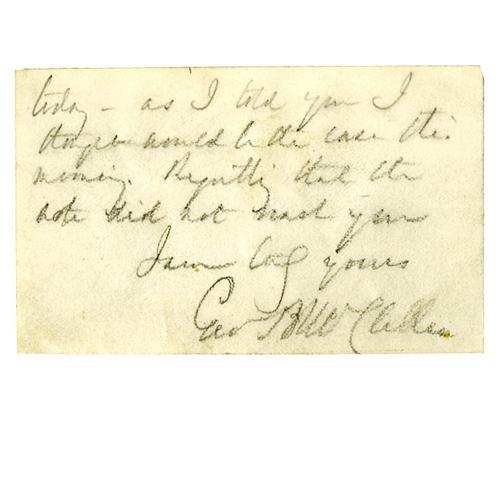 today – as I told you I
thought would be the case this
morning. Regretting that the
note did not reach you
I am truly yours
Geo B McClellan